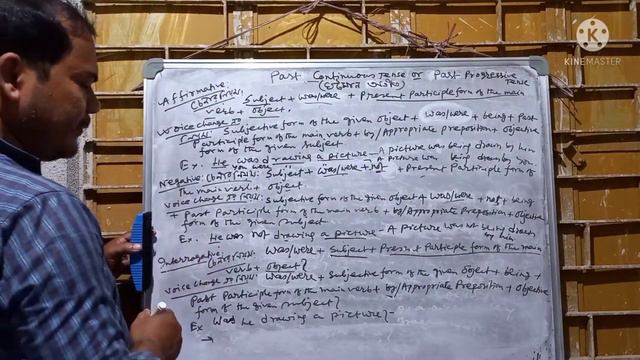 Past Continuous Tense or Past Progressive Tense
Affirmative:
Subject + was/were + Present Participle form of the main
verb + object.
Voice change Subjective form of the given object + was/were + being + Past
Participle form of the main verb + by/Appropriate preposition + objective
form of the given subject
Ex. He was drawing a picture - A picture was being drawn by him
you were " " A picture was being drawn by you.
Negative: Subject + was/were + not + Present Participle form of
the main verb + object
voice change Subjective form of the given object + was/were + not + being
+ Past Participle form of the main verb + by/Appropriate Preposition + objective
form of the given subject
Ex. He was not drawing a picture - A picture was not being drawn
by him
Interrogative: was/were + Subject + Present Participle form of the main
verb + object?
voice change was/were + Subjective form of the given object + being +
Past Participle form of the main verb + by/Appropriate Preposition + objective
form of the given subject?
Ex Was he drawing a picture? -
KINEMASTER